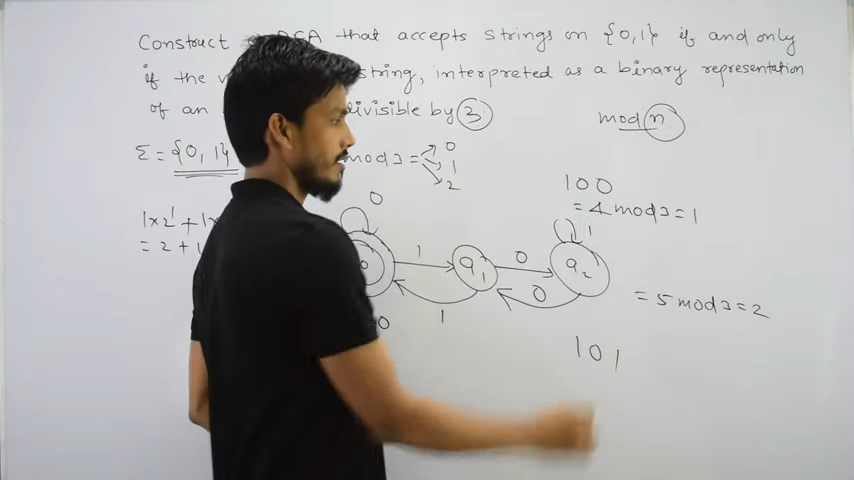 Construct DFA that accepts strings on {0,1} if and only
if the string, interpreted as a binary representation
of an divisible by 3.
mod n
Σ = {0, 1}
mod 3 = 0
1
2
100
= 4 mod 3 = 1
1x2¹ + 1x
= 2 + 1
0
1
q1
0
1
q2
0
1
0
= 5 mod 3 = 2
101